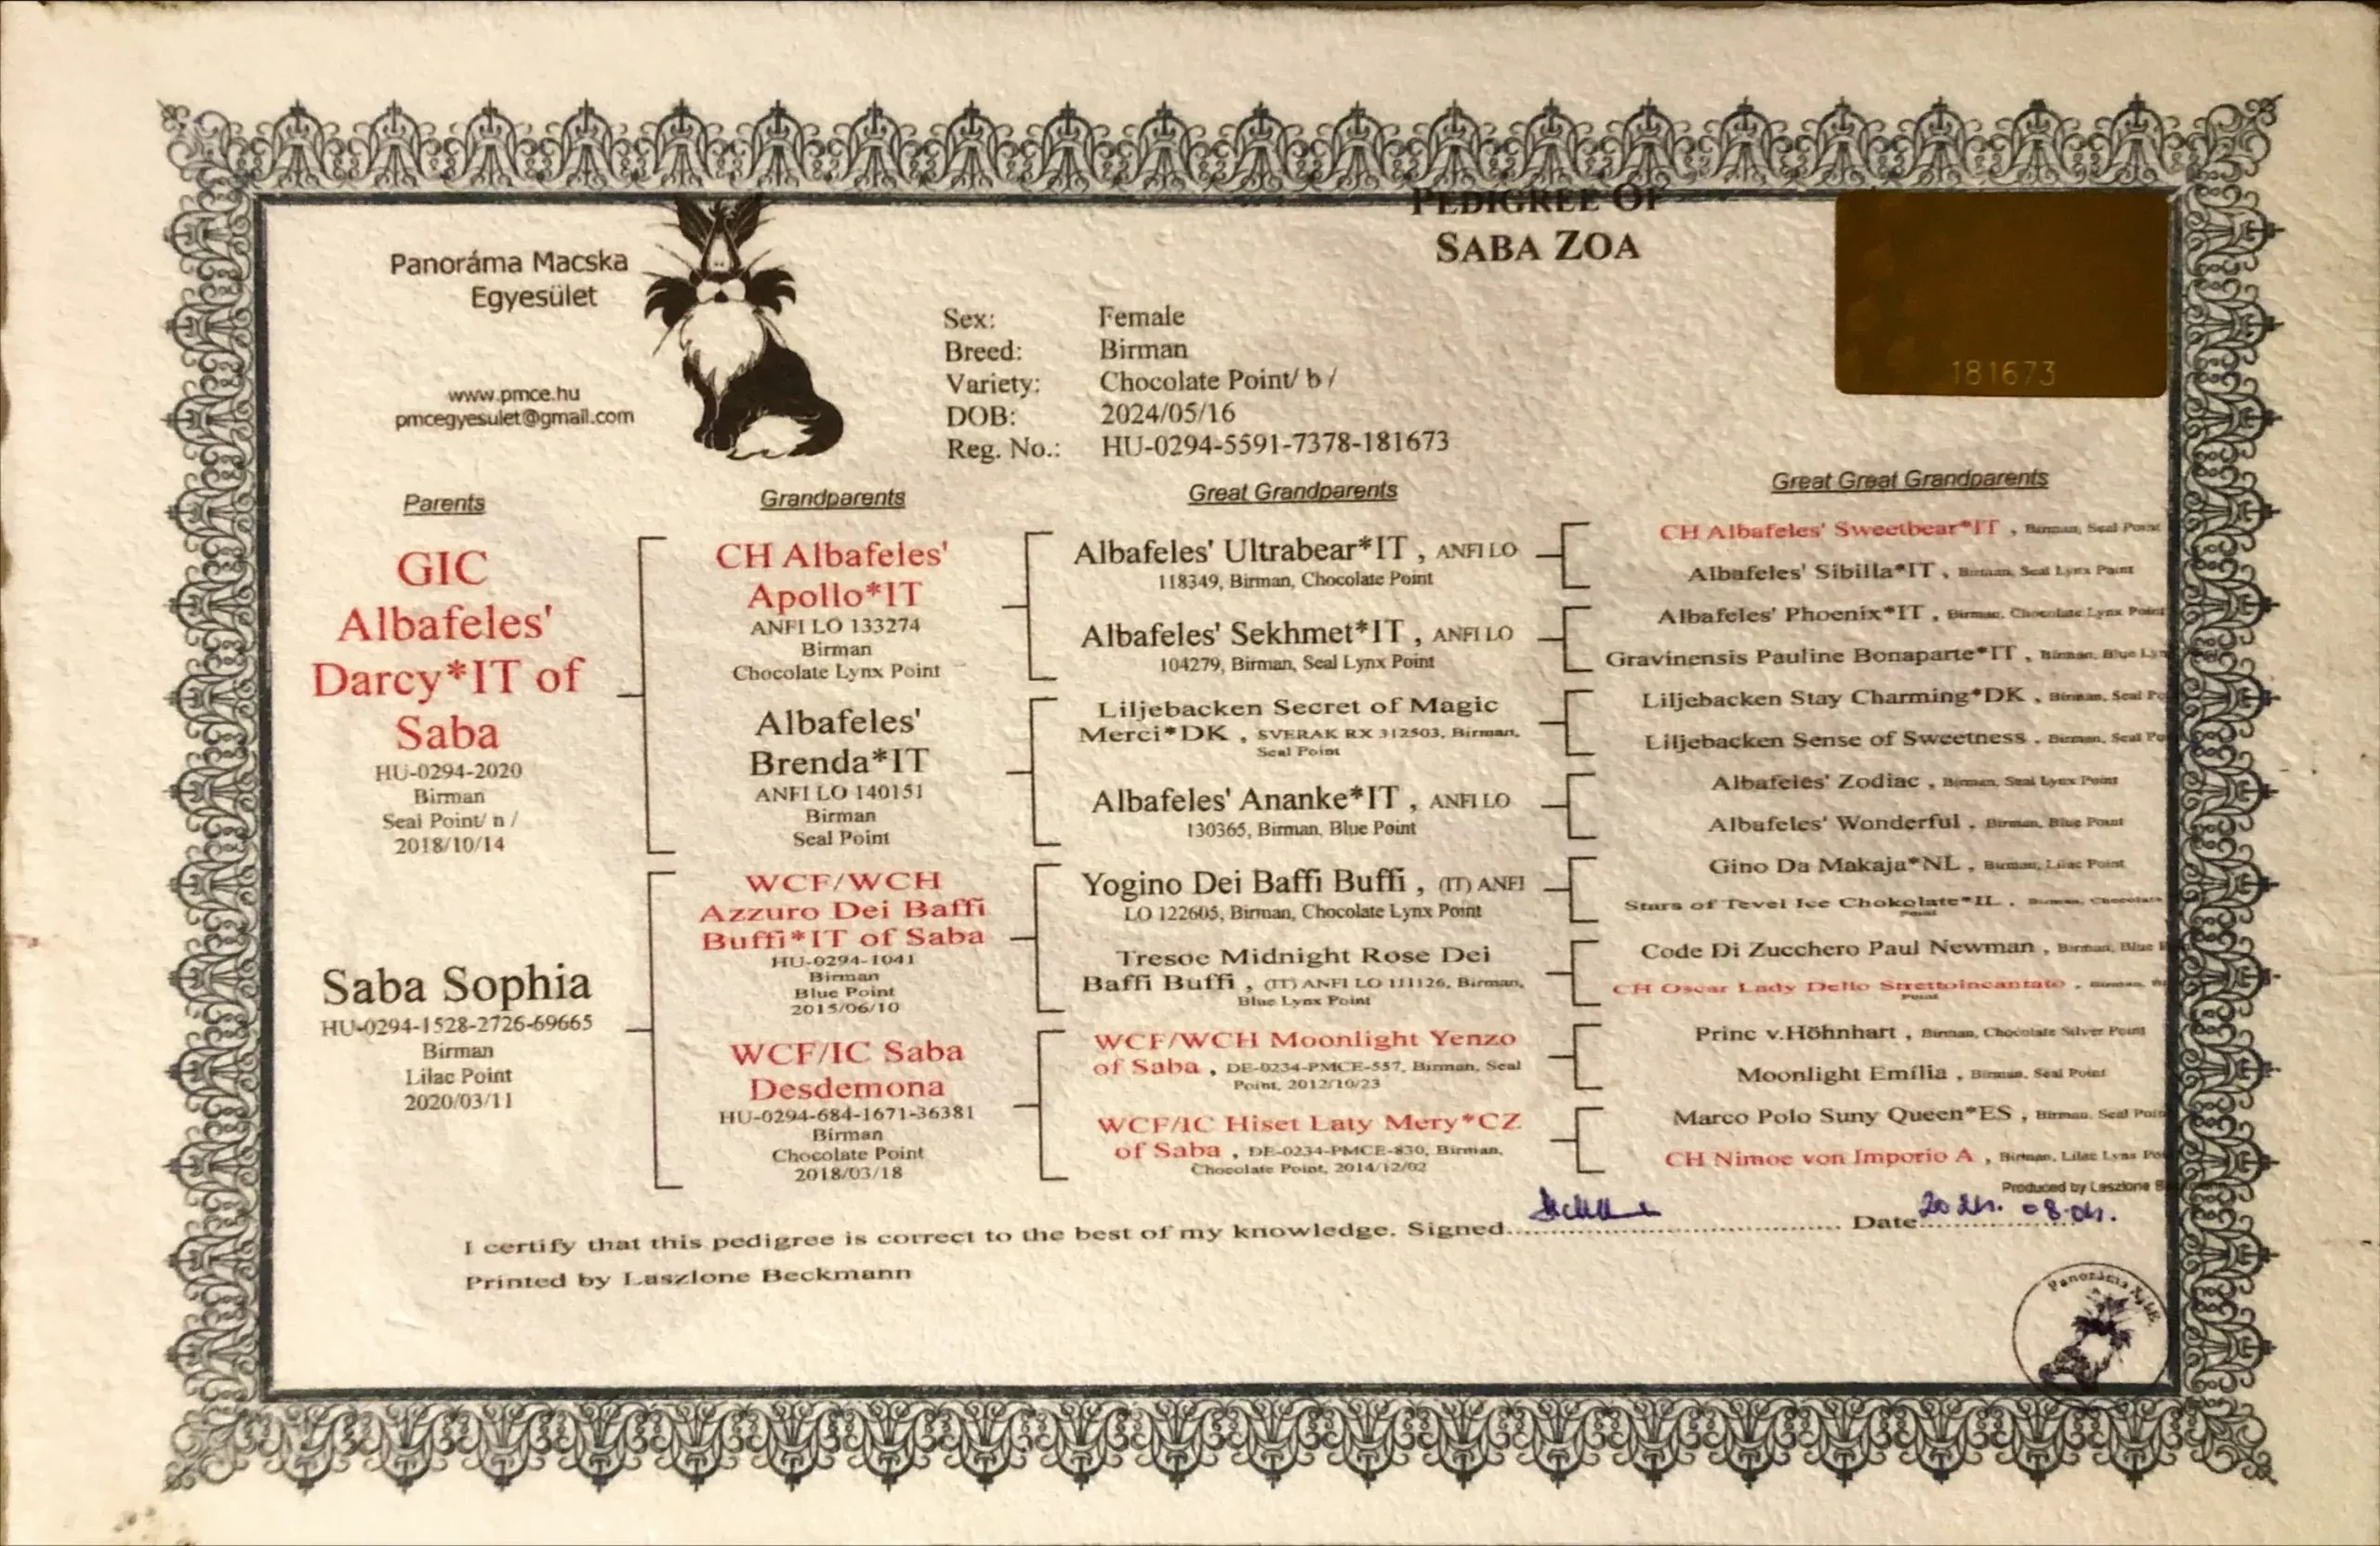 PEDIGREE OF
SABA ZOA
Panoráma Macska
Egyesület
www.pmce.hu
pmcegyesulet@gmail.com
Sex: Female
Breed: Birman
Variety: Chocolate Point/ b /
DOB: 2024/05/16
Reg. No.: HU-0294-5591-7378-181673
181673
Parents
GIC
Albafeles'
Darcy*IT of
Saba
HU-0294-2020
Birman
Seal Point/ n /
2018/10/14
Saba Sophia
HU-0294-1528-2726-69665
Birman
Lilac Point
2020/03/11
Grandparents
CH Albafeles'
Apollo*IT
ANFI LO 133274
Birman
Chocolate Lynx Point
Albafeles'
Brenda*IT
ANFI LO 140151
Birman
Seal Point
WCF/WCH
Azzuro Dei Baffi
Buffi*IT of Saba
HU-0294-1041
Birman
Blue Point
2015/06/10
WCF/IC Saba
Desdemona
HU-0294-684-1671-36381
Birman
Chocolate Point
2018/03/18
Great Grandparents
Albafeles' Ultrabear*IT , ANFI LO
118349, Birman, Chocolate Point
Albafeles' Sekhmet*IT , ANFI LO
104279, Birman, Seal Lynx Point
Liljebacken Secret of Magic
Merci*DK , SVERAK RX 312503, Birman,
Seal Point
Albafeles' Ananke*IT , ANFI LO
130365, Birman, Blue Point
Yogino Dei Baffi Buffi , (IT) ANFI
LO 122605, Birman, Chocolate Lynx Point
Tresoe Midnight Rose Dei
Baffi Buffi , (IT) ANFI LO 111126, Birman,
Blue Lynx Point
WCF/WCH Moonlight Yenzo
of Saba , DE-0234-PMCE-557, Birman, Seal
Point, 2012/10/23
WCF/IC Hiset Laty Mery*CZ
of Saba , DE-0234-PMCE-830, Birman,
Chocolate Point, 2014/12/02
Great Great Grandparents
CH Albafeles' Sweetbear*IT , Birman, Seal Point
Albafeles' Sibilla*IT , Birman, Seal Lynx Point
Albafeles' Phoenix*IT , Birman, Chocolate Lynx Point
Gravinensis Pauline Bonaparte*IT , Birman, Blue Lyn
Liljebacken Stay Charming*DK , Birman, Seal Po
Liljebacken Sense of Sweetness , Birman, Seal Po
Albafeles' Zodiac , Birman, Seal Lynx Point
Albafeles' Wonderful , Birman, Blue Point
Gino Da Makaja*NL , Birman, Lilac Point
Stars of Tevel Ice Chokolate*IL , Birman, Chocolate
Point
Code Di Zucchero Paul Newman , Birman, Blue
CH Oscar Lady Dello Strettoincantato , Birman,
Point
Princ v.Höhnhart , Birman, Chocolate Silver Point
Moonlight Emília , Birman, Seal Point
Marco Polo Suny Queen*ES , Birman, Seal Poin
CH Nimoe von Imporio A , Birman, Lilac Lynx Po
Produced by Laszlone B
I certify that this pedigree is correct to the best of my knowledge. Signed Date 2024. 08.04.
Printed by Laszlone Beckmann
Panoráma